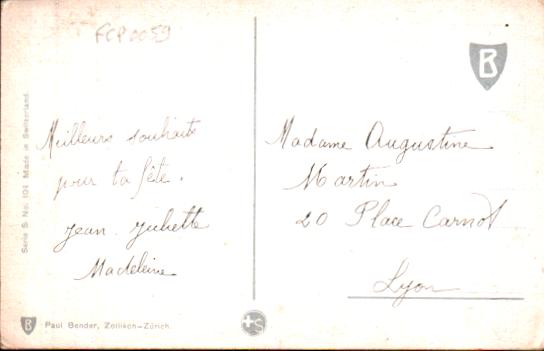 FCP0059
B
Serie S No. 104 Made in Switzerland.
Meilleurs souhaits
pour ta fête.
Jean. Juliette
Madeleine
Madame Augustine
Martin
20 Place Carnot
Lyon
B Paul Bender, Zollikon-Zürich.
+S